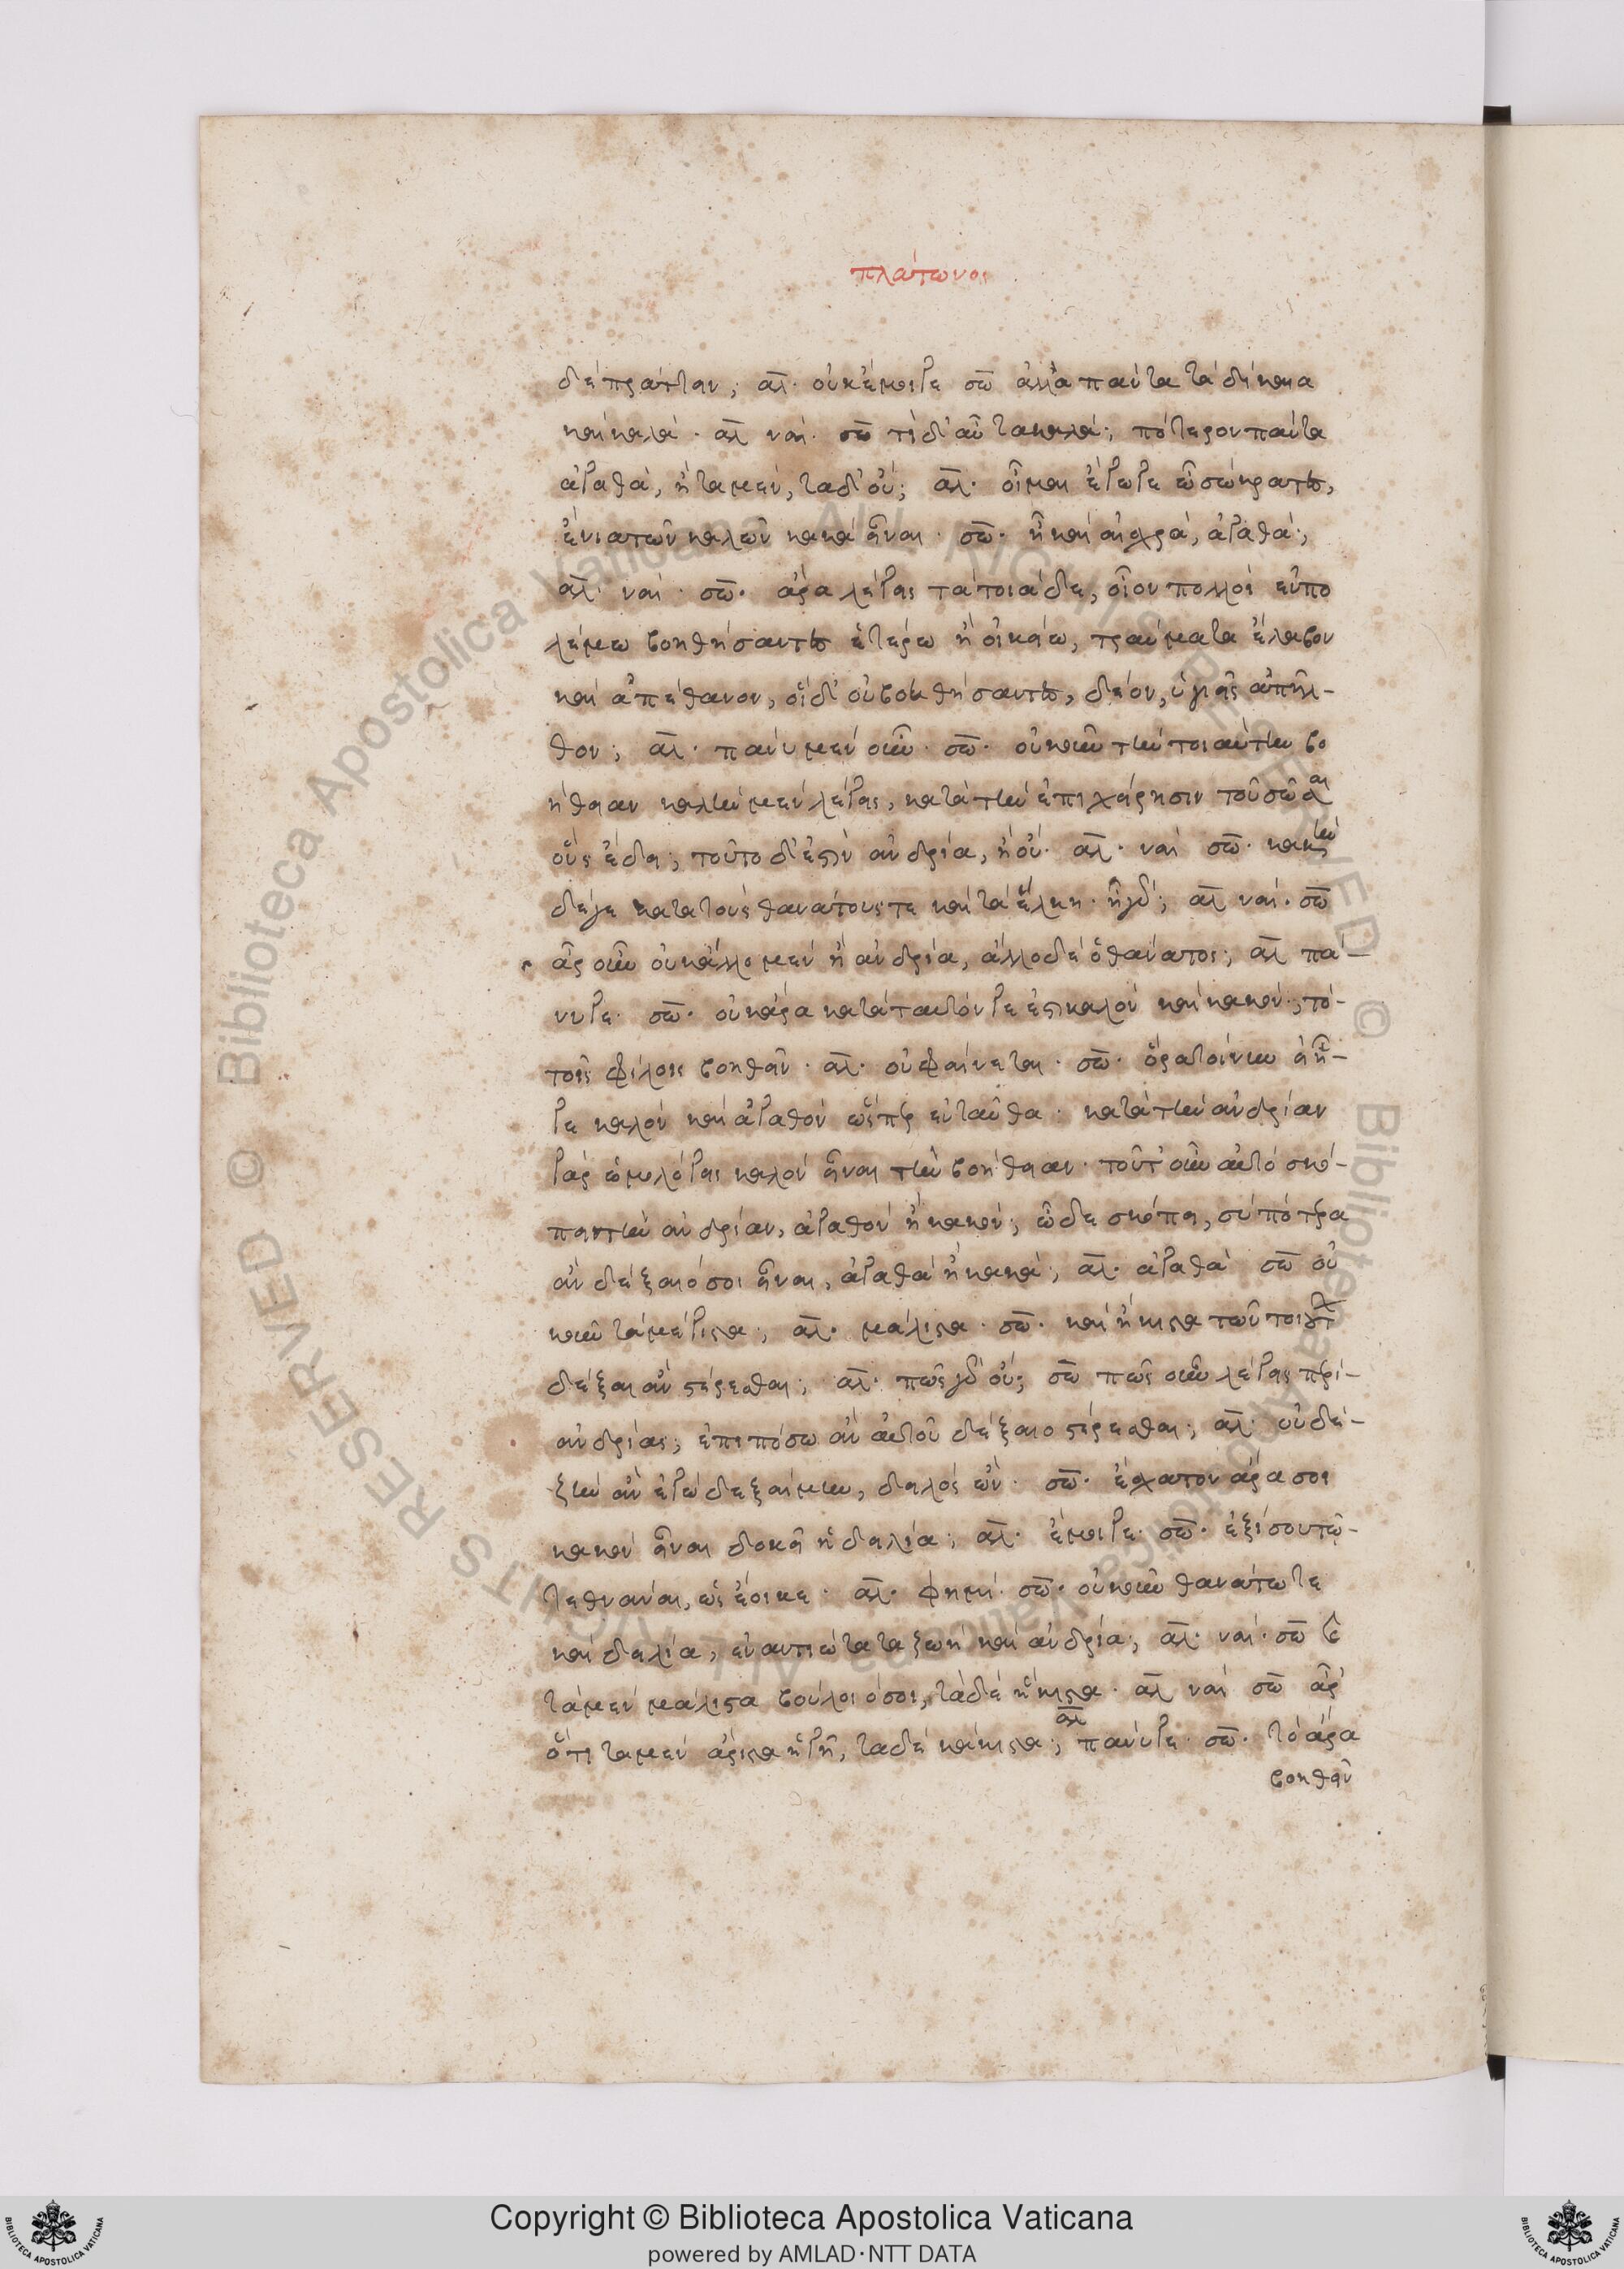 πλάτωνος
δὲ πράττειν; ἀλ. οὐκ ἔμοιγε σω ἀλλὰ πάντα τὰ δίκαια
καὶ καλά. ἀλ ναί. σω τί δ' αὖ τὰ καλά; πότερον πάντα
ἀγαθά, ἢ τὰ μὲν, τὰ δ' οὔ; ἀλ. οἶμαι ἔγωγε ὦ σώκρατες,
ἔνια τῶν καλῶν κακὰ εἶναι. σω. ἦ καὶ αἰσχρὰ, ἀγαθά;
ἀλ. ναί. σω. ἆρα λέγεις τὰ τοιάδε, οἷον πολλοὶ ἐν πο
λέμω βοηθήσαντες ἑτέρω ἢ οἰκείω, τραύματα ἔλαβον
καὶ ἀπέθανον, οἱ δ' οὐ βοηθήσαντες, δέον, ὑγιεῖς ἀπῆλ-
θον; ἀλ. πάνυ μὲν οὖν. σω. οὐκοῦν τὴν τοιαύτην βο
ήθειαν καλὴν μὲν λέγεις, κατὰ τὴν ἐπιχείρησιν τοῦ σῶσαι
οὓς ἔδει; τοῦτο δ' ἐστὶν ἀνδρία, ἢ οὔ. ἀλ. ναί σω. κακὴν
δέ γε κατὰ τοὺς θανάτους τε καὶ τὰ ἕλκη. ἦ γάρ; ἀλ ναί. σω
ἆρ οὖν οὐκ ἄλλο μὲν ἡ ἀνδρία, ἄλλο δὲ ὁ θάνατος; ἀλ πά-
νυ γε. σω. οὐκ ἄρα κατὰ ταυτόν γε ἐστι καλὸν καὶ κακόν, τὸ-
τοῖς φίλοις βοηθεῖν. ἀλ. οὐ φαίνεται. σω. ὅρα τοίνυν εἰ ἧ-
γε καλὸν καὶ ἀγαθὸν ὥσπερ ἐνταῦθα. κατὰ τὴν ἀνδρίαν
γὰρ ὡμολόγεις καλὸν εἶναι τὴν βοήθειαν. τοῦτ' οὖν αὐτὸ σκό-
πει τὴν ἀνδρίαν, ἀγαθὸν ἢ κακόν; ὧδε σκόπει, σὺ πότερα
ἂν δέξαιό σοι εἶναι, ἀγαθὰ ἢ κακά; ἀλ. ἀγαθά σω οὐ
κοῦν τὰ μέγιστα; ἀλ. μάλιστα. σω. καὶ ἥκιστα τῶν τοιούτων
δέξαι ἂν στέρεσθαι; ἀλ. πῶς γὰρ οὔ; σω πῶς οὖν λέγεις περὶ-
ἀνδρίας; ἐπὶ πόσω ἂν αὐτοῦ δέξαιο στέρεσθαι; ἀλ. οὐδὲ-
ζῆν ἂν ἐγὼ δεξαίμην, δειλὸς ὤν. σω. ἔσχατον ἄρα σοι
κακὸν εἶναι δοκεῖ ἡ δειλία; ἀλ. ἔμοιγε. σω. ἐξίσου τῶ-
τεθνάναι, ὡς ἔοικε. ἀλ. φημί. σω. οὐκοῦν θανάτω τε
καὶ δειλία, ἐναντιώτατα ζωὴ καὶ ἀνδρία; ἀλ. ναί. σω καὶ
τὰ μὲν μάλιστα βούλοι ὅσοι, τὰ δὲ ἥκιστα. ἀλ ναί σω ἆρ'
ὅτι τὰ μὲν ἄριστα ἡγῆ, τὰ δὲ κάκιστα; ἀλ πάνυ γε. σω. τὸ ἄρα
βοηθεῖν